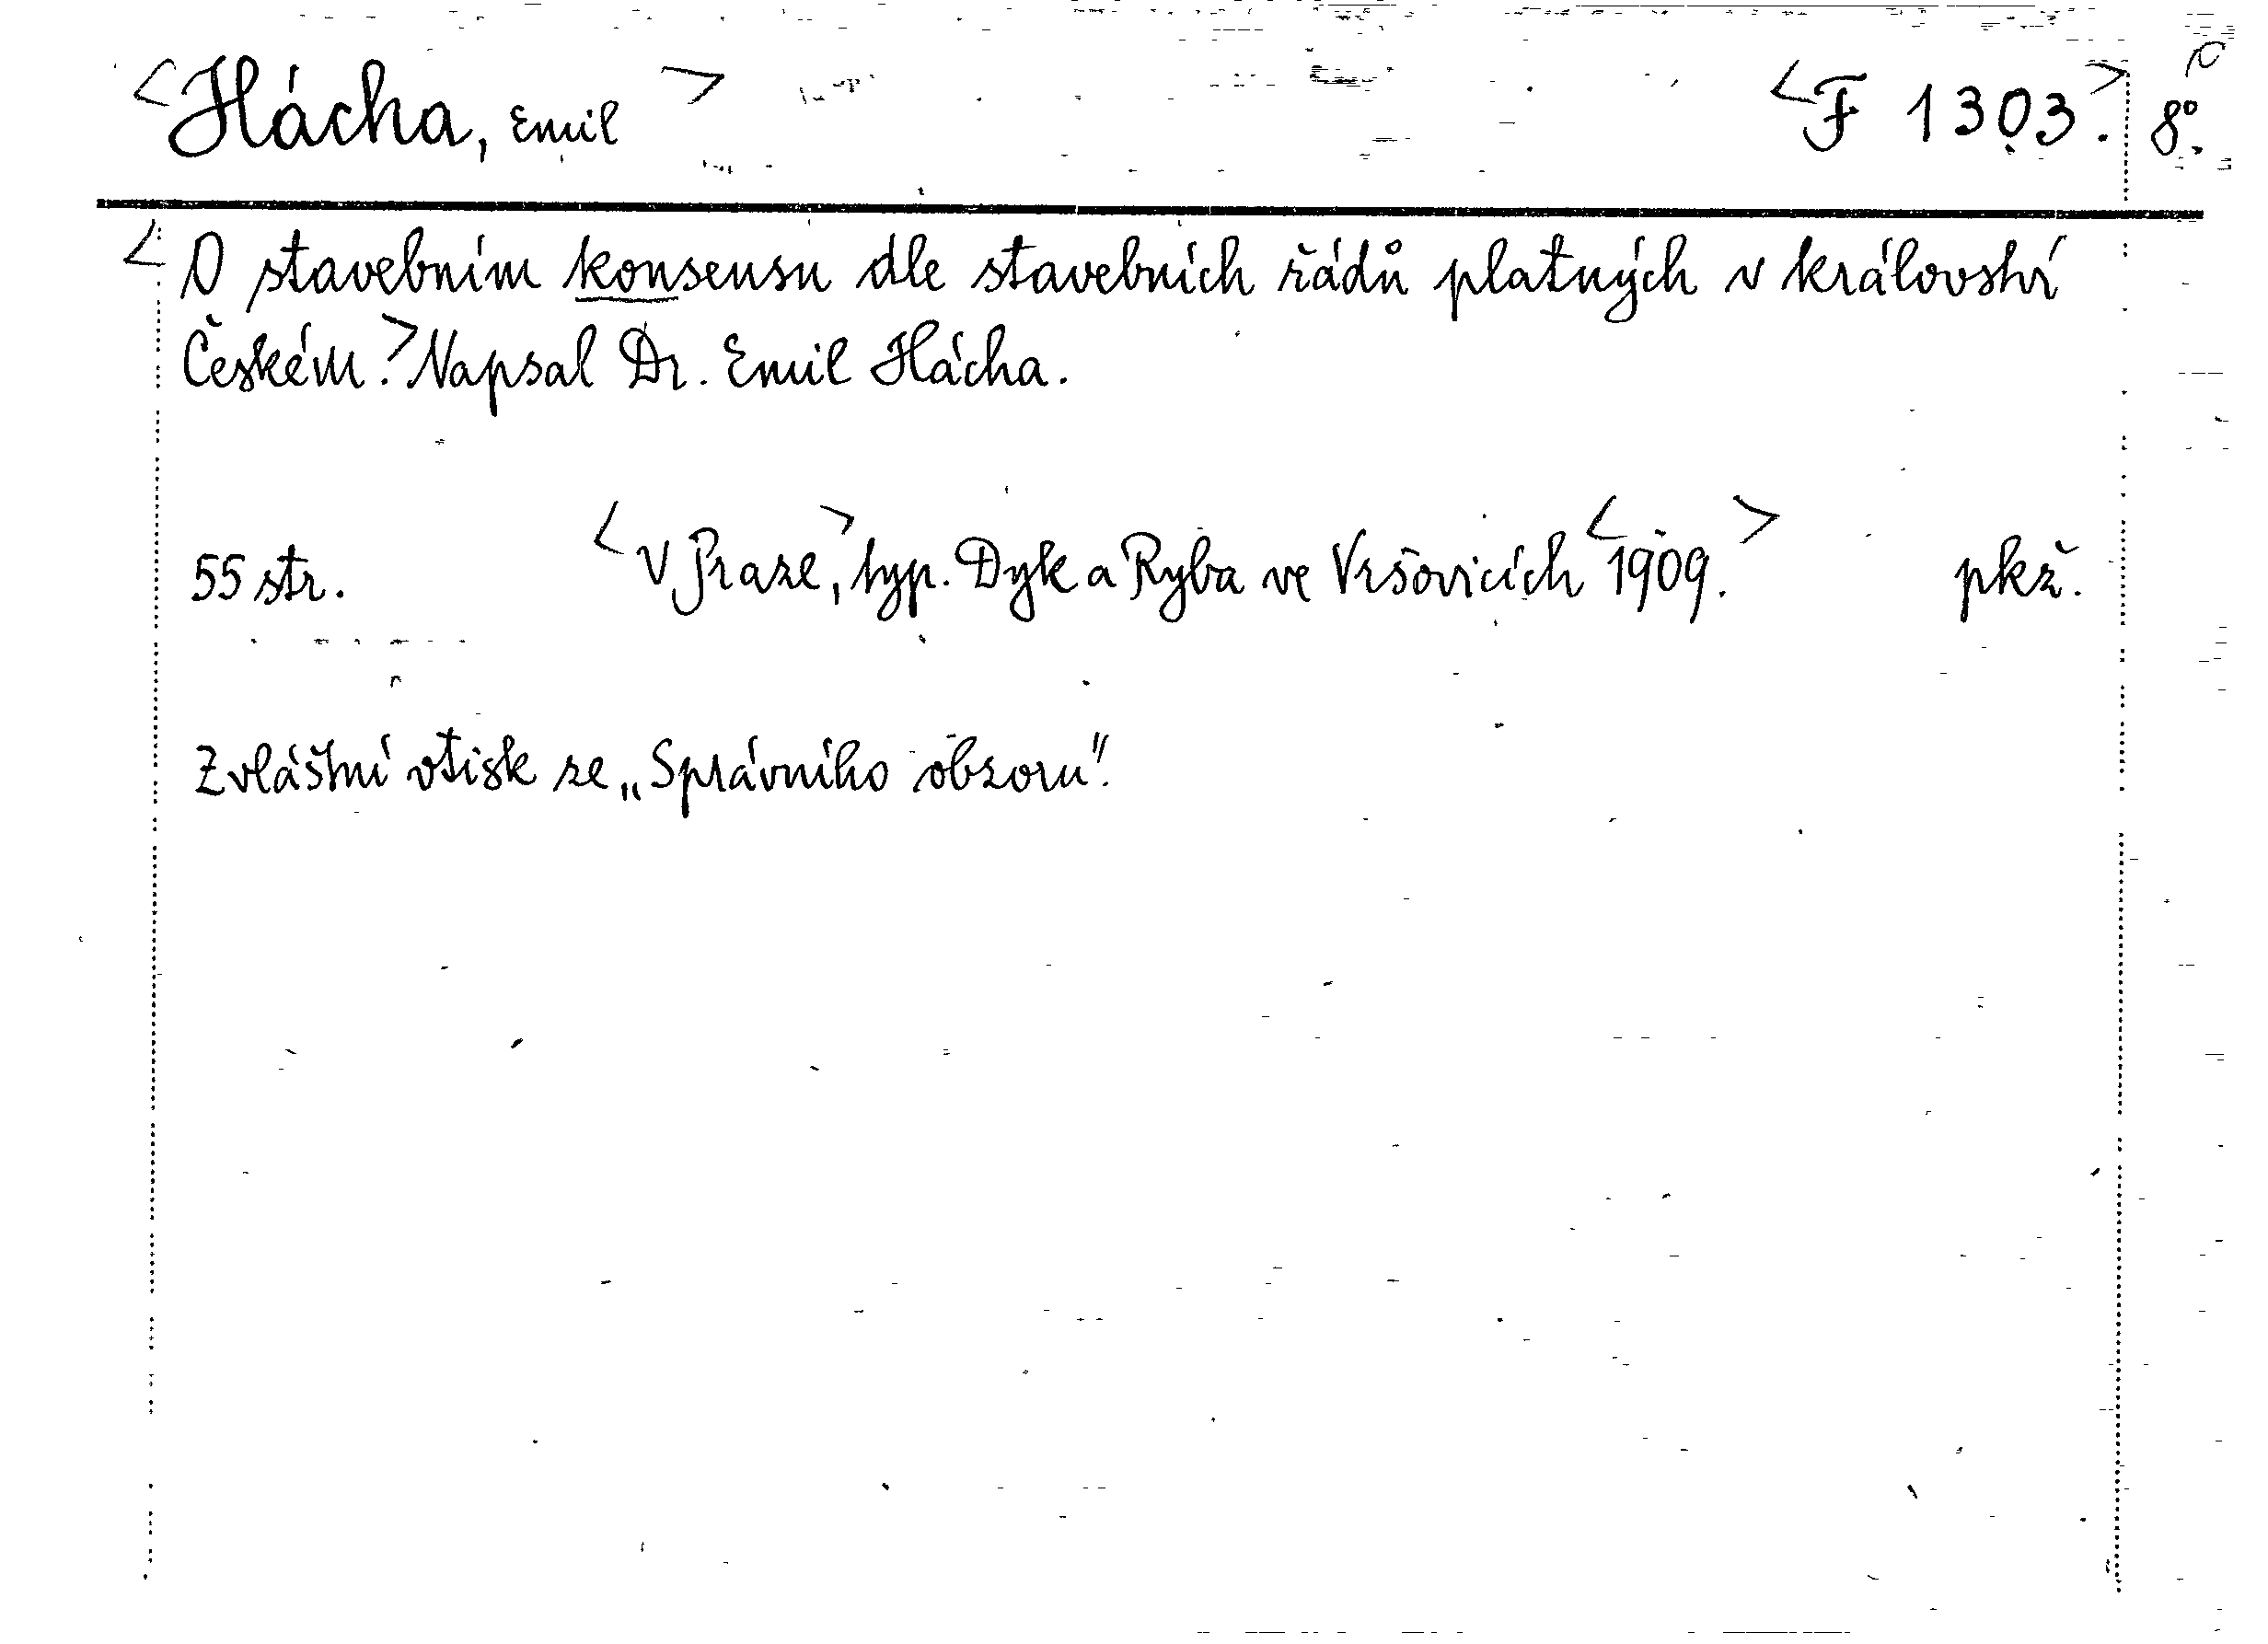 <Hácha, Emil> <F 1303.> 8°.
<O stavebním konsensu dle stavebních řádů platných v království
Českém.> Napsal Dr. Emil Hácha.
55 str. <V Praze,> typ. Dyk a Ryba ve Vršovicích <1909.> pkž.
Zvláštní otisk ze „Správního obzoru".